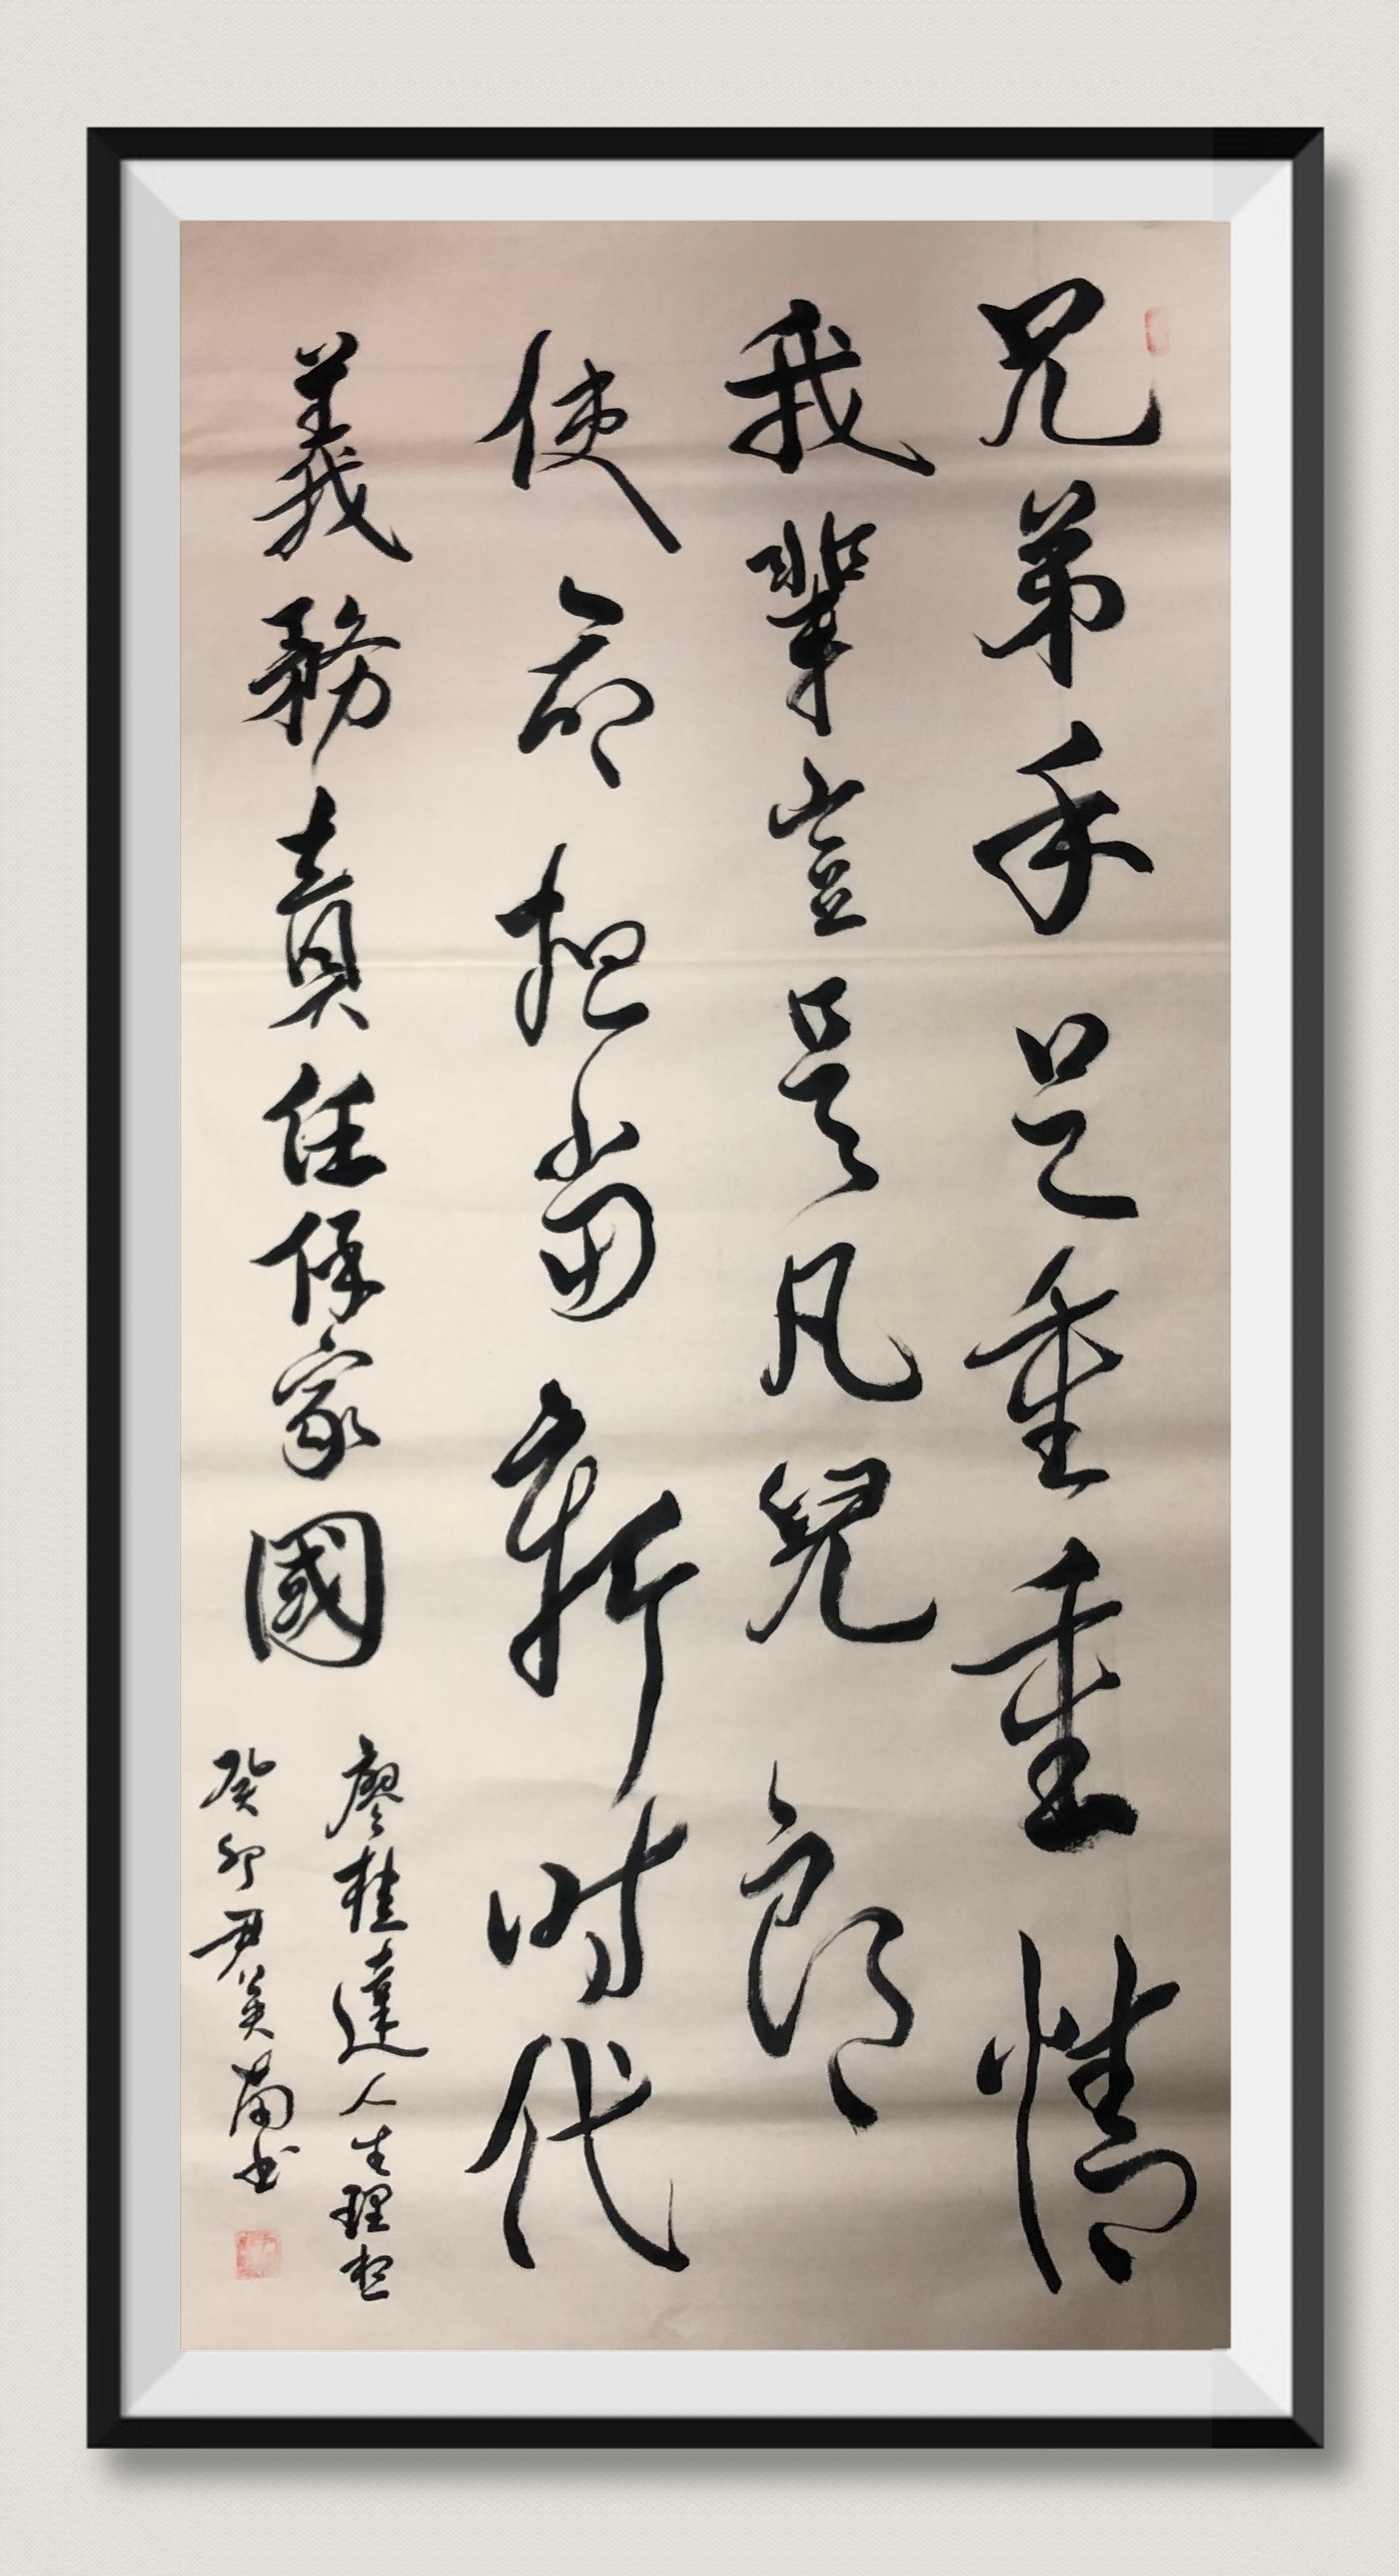 兄弟手足重重情
我輩豈是凡兒郎
使命担当新时代
義務責任保家國
廖桂達人生理想
癸卯尹美蘭书